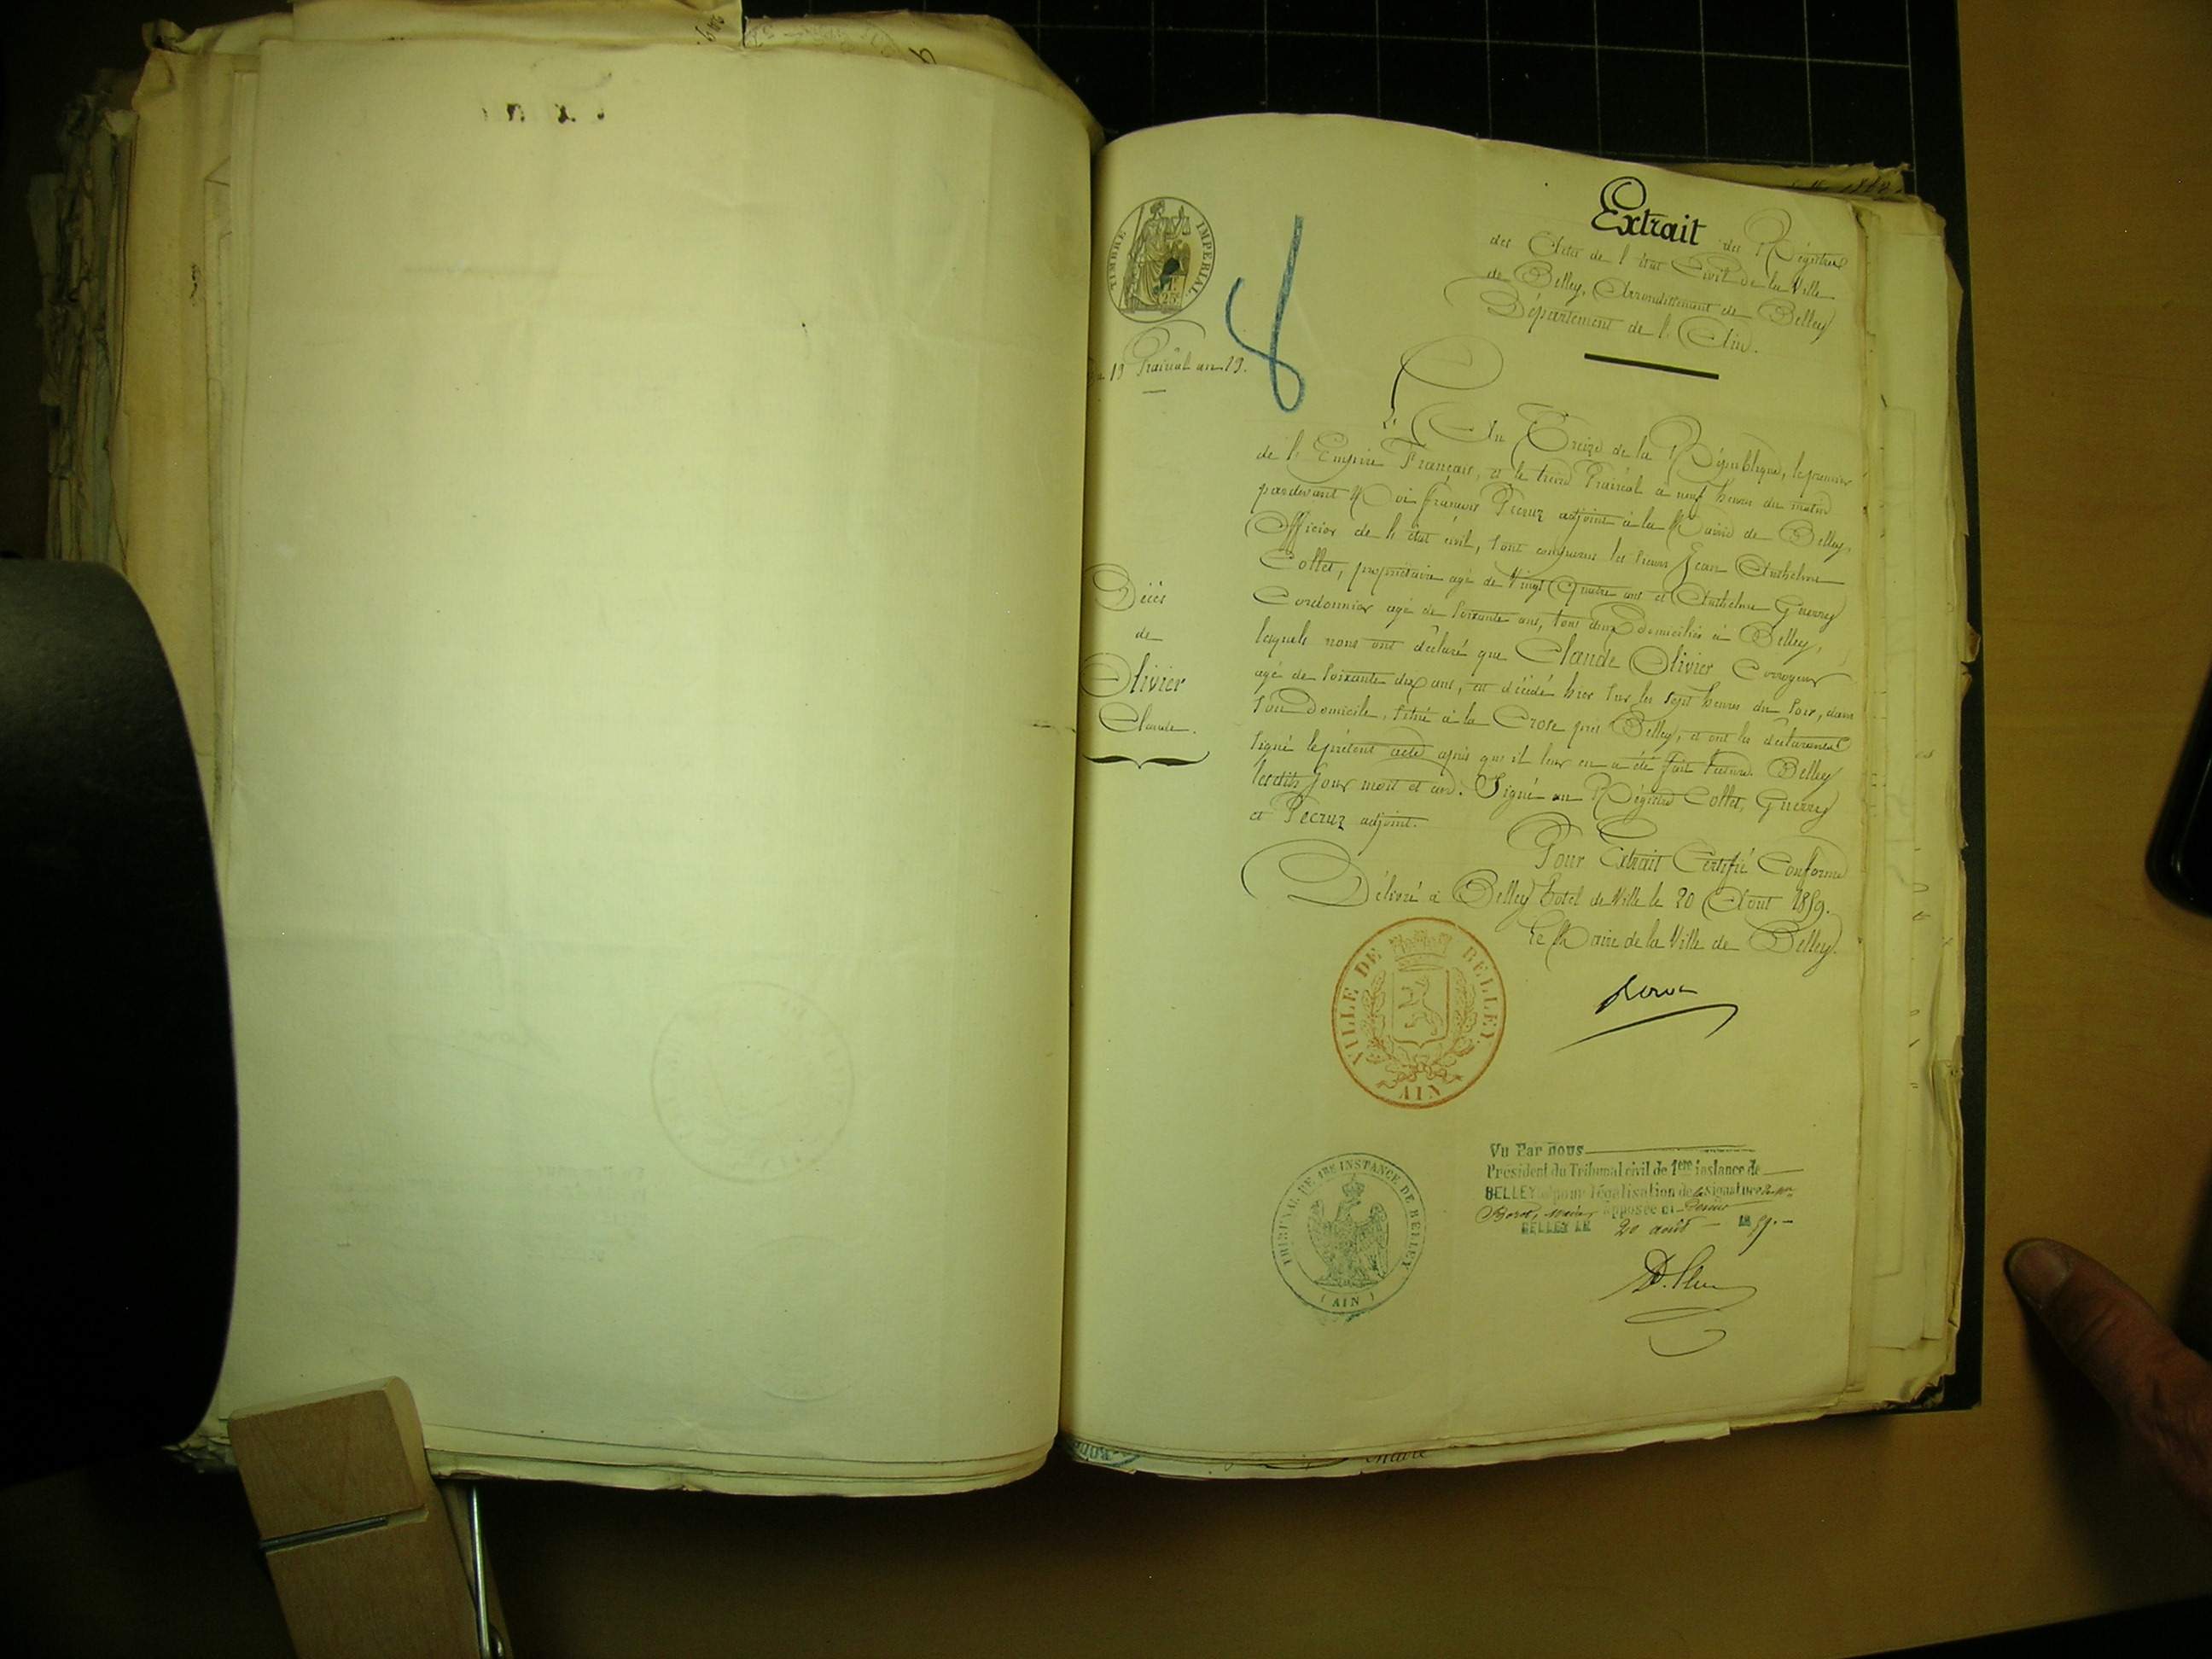 TIMBRE IMPERIAL
Extrait des Régistres
des Actes de l'état Civil de la Ville
de Belley, Arrondissement de Belley
Département de l'Ain.
13 Prairial an 13.
L'An Treize de la République, le premier
de l'Empire Français, et le treize Prairial à neuf heures du matin
pardevant Moi françois Pecruz adjoint à la Mairie de Belley,
Officier de l'état civil, sont comparus les sieurs Jean Anthelme
Collet, propriétaire agé de Vingt Quatre ans et Anthelme Guerrey
Cordonnier agé de soixante ans, tous deux Domiciliés à Belley,
lesquels nous ont déclaré que Claude Olivier Corroyeur
agé de soixante dix ans, est décédé hier sur les sept heures du soir, dans
son Domicile, situé à la Crose près Belley, et ont les déclarants
signé le présent acte après qu'il leur en a été fait lecture. Belley
lesdits jour mois et an. Signé au Régistre Collet, Guerrey
et Pecruz adjoint.
Décès
de
Olivier
Claude.
Pour Extrait Certifié Conforme
Délivré à Belley hotel de Ville le 20 Aout 1859.
Le Maire de la Ville de Belley.
VILLE DE BELLEY
AIN
TRIBUNAL DE 1RE INSTANCE DE BELLEY
(AIN)
Vu Par nous
Président du Tribunal civil de 1ere instance de
BELLEY pour légalisation de la signature
maire apposée ci-
BELLEY LE 20 août 1859.